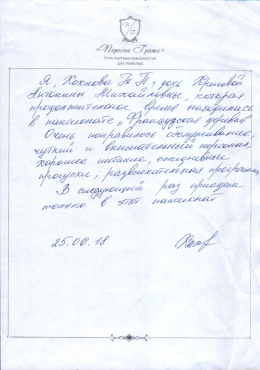 «Тёрския Грант»
Сеть частных пансионатов
для пожилых
Я Хохлова Т П, дочь Крыловой
Антонины Михайловны, которая
продолжительное время находилась
в пансионате „Французская деревня"
Очень понравилось обслуживание,
чуткий и внимательный персонал,
хорошее питание, ежедневные
прогулки, развлекательная программа
В следующий раз приедем
только в этот пансионат
25.08.18